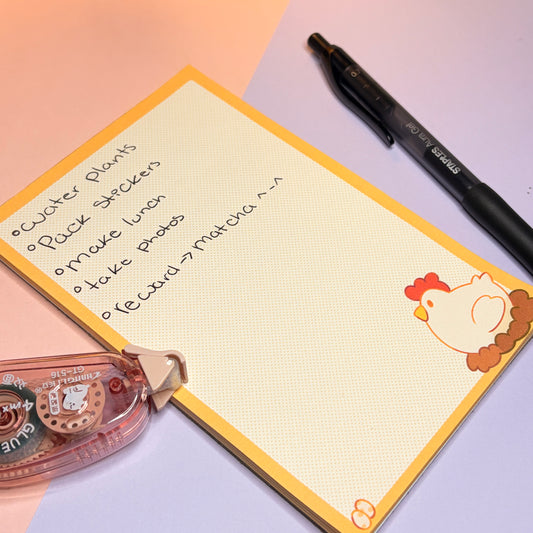 °water plants
°Pack stickers
°make lunch
°take photos
°reward→matcha ^-^
STAPLES Aura Gel
GT-516
GLUE